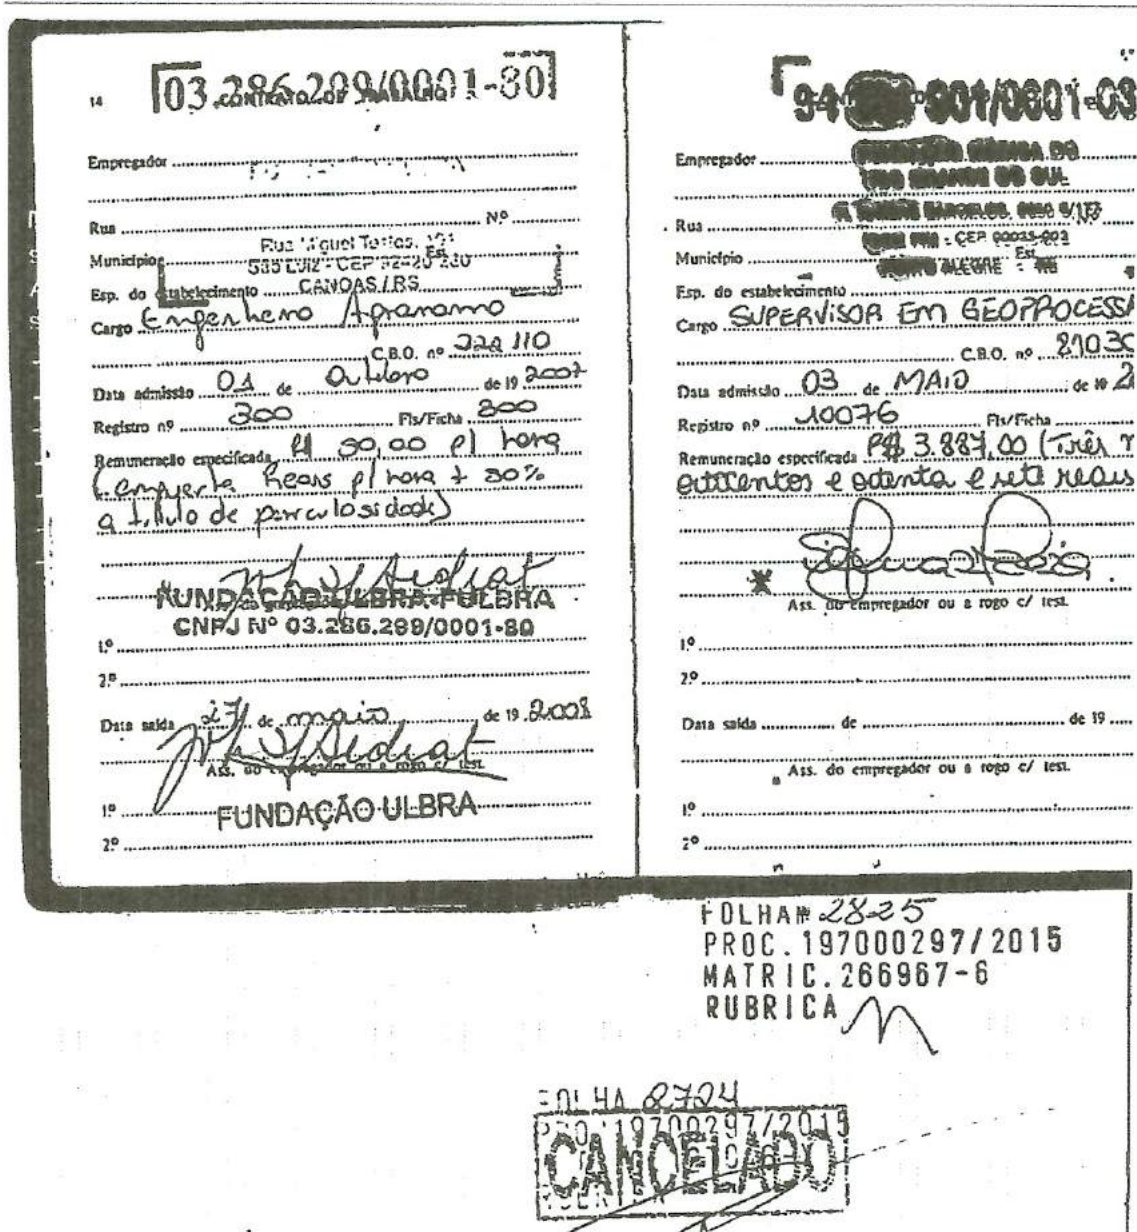 03.286.289/0001-80
14 CONTRATO DE TRABALHO
Empregador
Rua Nº
Rua Miguel Tostes, 101
Município Est.
CANOAS / RS
Esp. do estabelecimento
Cargo Engenheiro Agronomo
C.B.O. nº 222 110
Data admissão 01 de Outubro de 19 2007
Registro nº 300 Fls/Ficha 300
Remuneração especificada R$ 50,00 p/ hora
reais p/ hora + 30%
a título de periculosidade)
FUNDAÇÃO ULBRA-FULBRA
CNPJ Nº 03.286.289/0001-80
1.º
2.º
Data saída 27 de maio de 19 2008
Ass. do empregador ou a rogo c/ test.
1º FUNDAÇÃO ULBRA
2º
94 001/0001-03
Empregador
RIO GRANDE DO SUL
Rua
Município Est.
PORTO ALEGRE - RS
Esp. do estabelecimento
Cargo SUPERVISOR EM GEOPROCESSA
C.B.O. nº 2103
Data admissão 03 de MAIO de 19 2
Registro nº 10076 Fls/Ficha
Remuneração especificada R$ 3.887,00 (Três
oitocentos e oitenta e sete reais
Ass. do empregador ou a rogo c/ test.
1.º
2º
Data saída de de 19
Ass. do empregador ou a rogo c/ test.
1º
2º
FOLHA# 2825
PROC.197000297/2015
MATRIC.266967-6
RUBRICA
FOLHA 2724
197000297/2015
CANCELADO